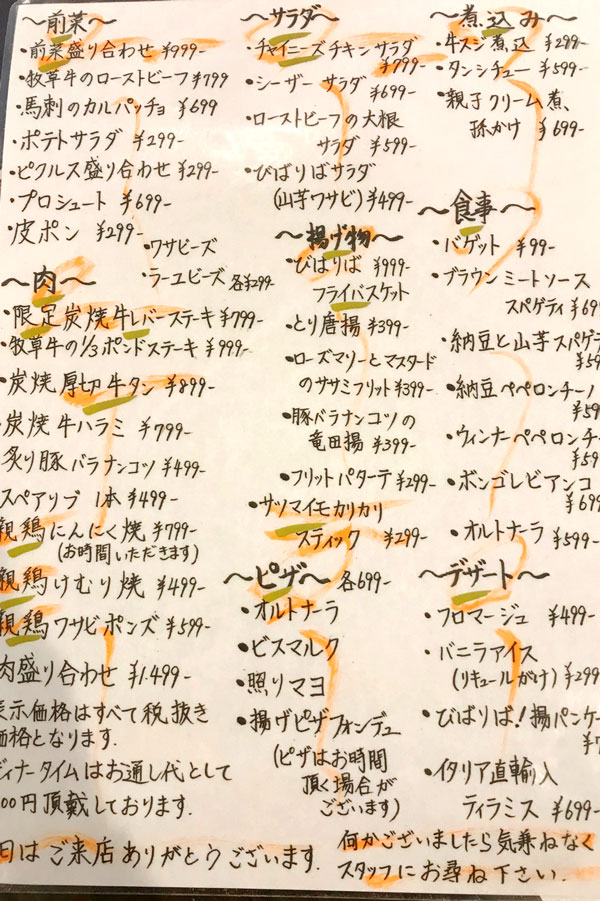 〜前菜〜
・前菜盛り合わせ ¥999-
・牧草牛のローストビーフ ¥799
・馬刺のカルパッチョ ¥699
・ポテトサラダ ¥299-
・ピクルス盛り合わせ ¥299-
・プロシュート ¥699-
・皮ポン ¥299-
・ワサビーズ
・ラーユビーズ 各¥299-
〜肉〜
・限定炭焼牛レバーステーキ ¥799-
・牧草牛の1/3ポンドステーキ ¥999-
・炭焼厚切牛タン ¥899-
炭焼牛ハラミ ¥799-
炙り豚バラナンコツ ¥499-
スペアリブ 1本 ¥499-
親鶏にんにく焼 ¥799-
(お時間いただきます)
親鶏けむり焼 ¥499-
親鶏ワサビポンズ ¥599-
肉盛り合わせ ¥1,499-
表示価格はすべて税抜き
価格となります.
ディナータイムはお通し代として
00円頂戴しております.
日はご来店ありがとうございます.
〜サラダ〜
・チャイニーズチキンサラダ
¥799-
・シーザーサラダ ¥699-
・ローストビーフの大根
サラダ ¥599-
・びばりばサラダ
(山芋ワサビ) ¥499-
〜揚げ物〜
・びばりば ¥999-
フライバスケット
・とり唐揚 ¥399-
・ローズマリーとマスタード
のササミフリット ¥399-
・豚バラナンコツの
竜田揚 ¥399-
・フリットパターテ ¥299-
・サツマイモカリカリ
スティック ¥299-
〜ピザ〜 各699-
・オルトナーラ
・ビスマルク
・照りマヨ
・揚げピザフォンデュ
(ピザはお時間
頂く場合が
ございます)
〜煮込み〜
・牛スジ煮込 ¥299-
・タンシチュー ¥599-
・親子クリーム煮、
孫かけ ¥699-
〜食事〜
・バゲット ¥99-
・ブラウンミートソース
スパゲティ ¥69
・納豆と山芋スパゲテ
¥59
・納豆ペペロンチーノ
¥59
・ウィンナーペペロンチー
¥59
・ボンゴレビアンコ
¥699
・オルトナーラ ¥599-
〜デザート〜
・フロマージュ ¥499-
・バニラアイス
(リキュールがけ) ¥299
・びばりば!揚パンケー
・イタリア直輸入
ティラミス ¥699-
何かございましたら気兼ねなく
スタッフにお尋ね下さい.